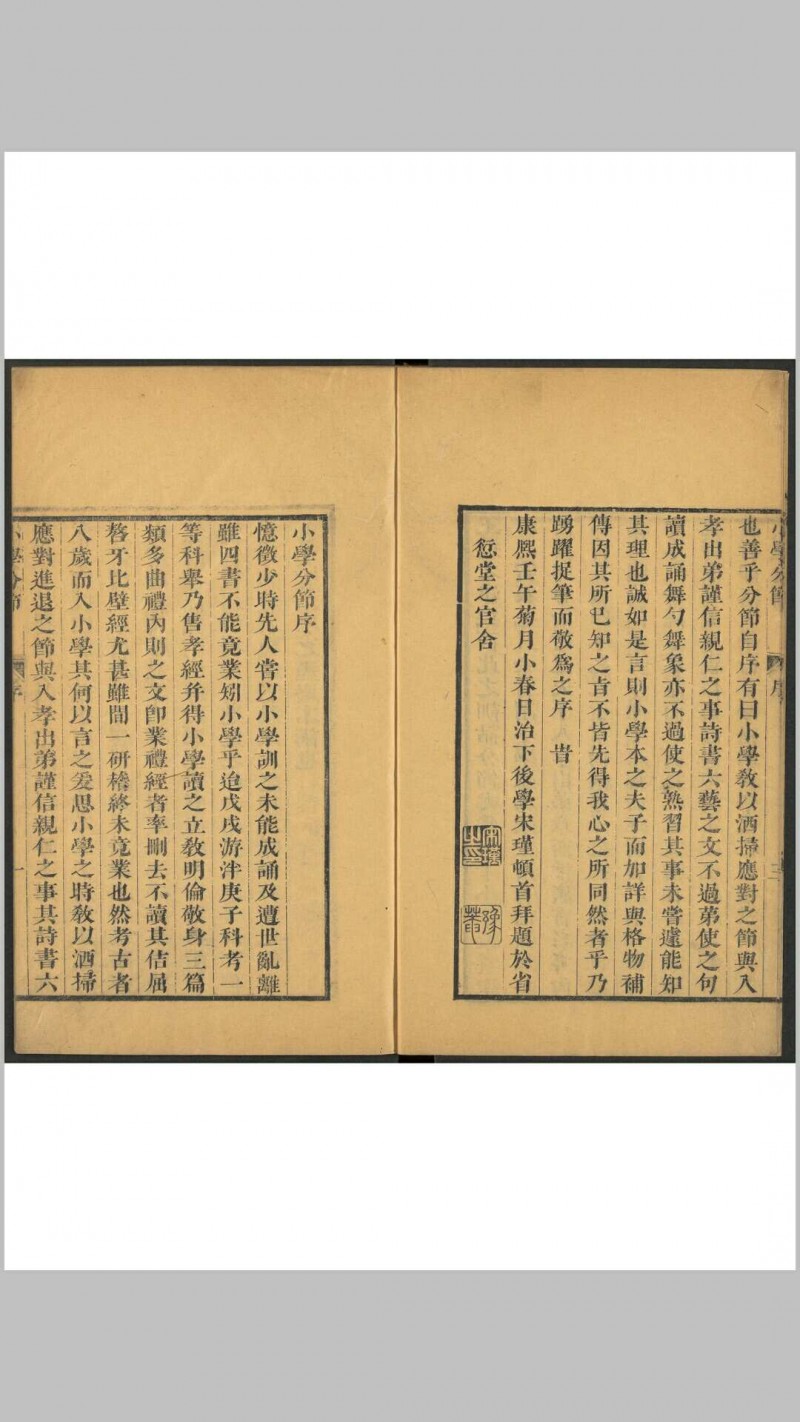 也善乎分節自序有曰小學敎以洒掃應對之節與入
孝出弟謹信親仁之事詩書六藝之文不過弟使之句
讀成誦舞勺舞象亦不過使之熟習其事未嘗遽能知
其理也誠如是言則小學本之夫子而加詳與格物補
傳因其所已知之㫖不皆先得我心之所同然者乎乃
踴躍捉筆而敬爲之序 㫖
康熈壬午菊月小春日治下後學宋瑾頓首拜題於省
愆堂之官舍
小學分節序
憶徵少時先人嘗以小學訓之未能成誦及遭世亂離
雖四書不能竟業矧小學乎迨戊戌游泮庚子科考一
等科舉乃售孝經幷得小學讀之立敎明倫敬身三篇
類多曲禮內則之文卽業禮經者率刪去不讀其佶屈
謷牙比壁經尤甚雖間一研樁終未竟業也然考古者
八歲而入小學其何以言之爰思小學之時敎以洒掃
應對進退之節與入孝出弟謹信親仁之事其詩書六
小學分節 序 一